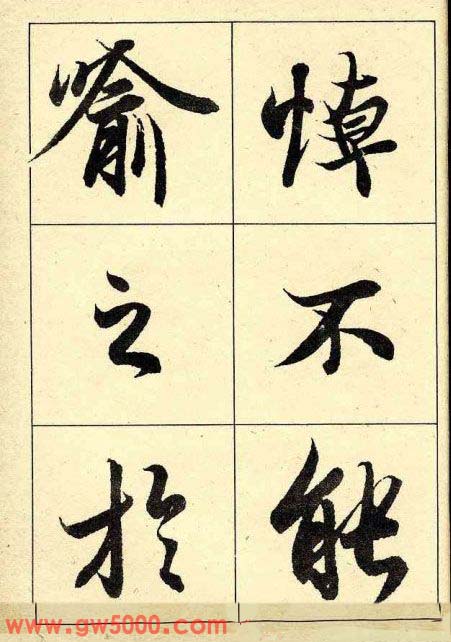 悼不能
喻之於
www.gw5000.com